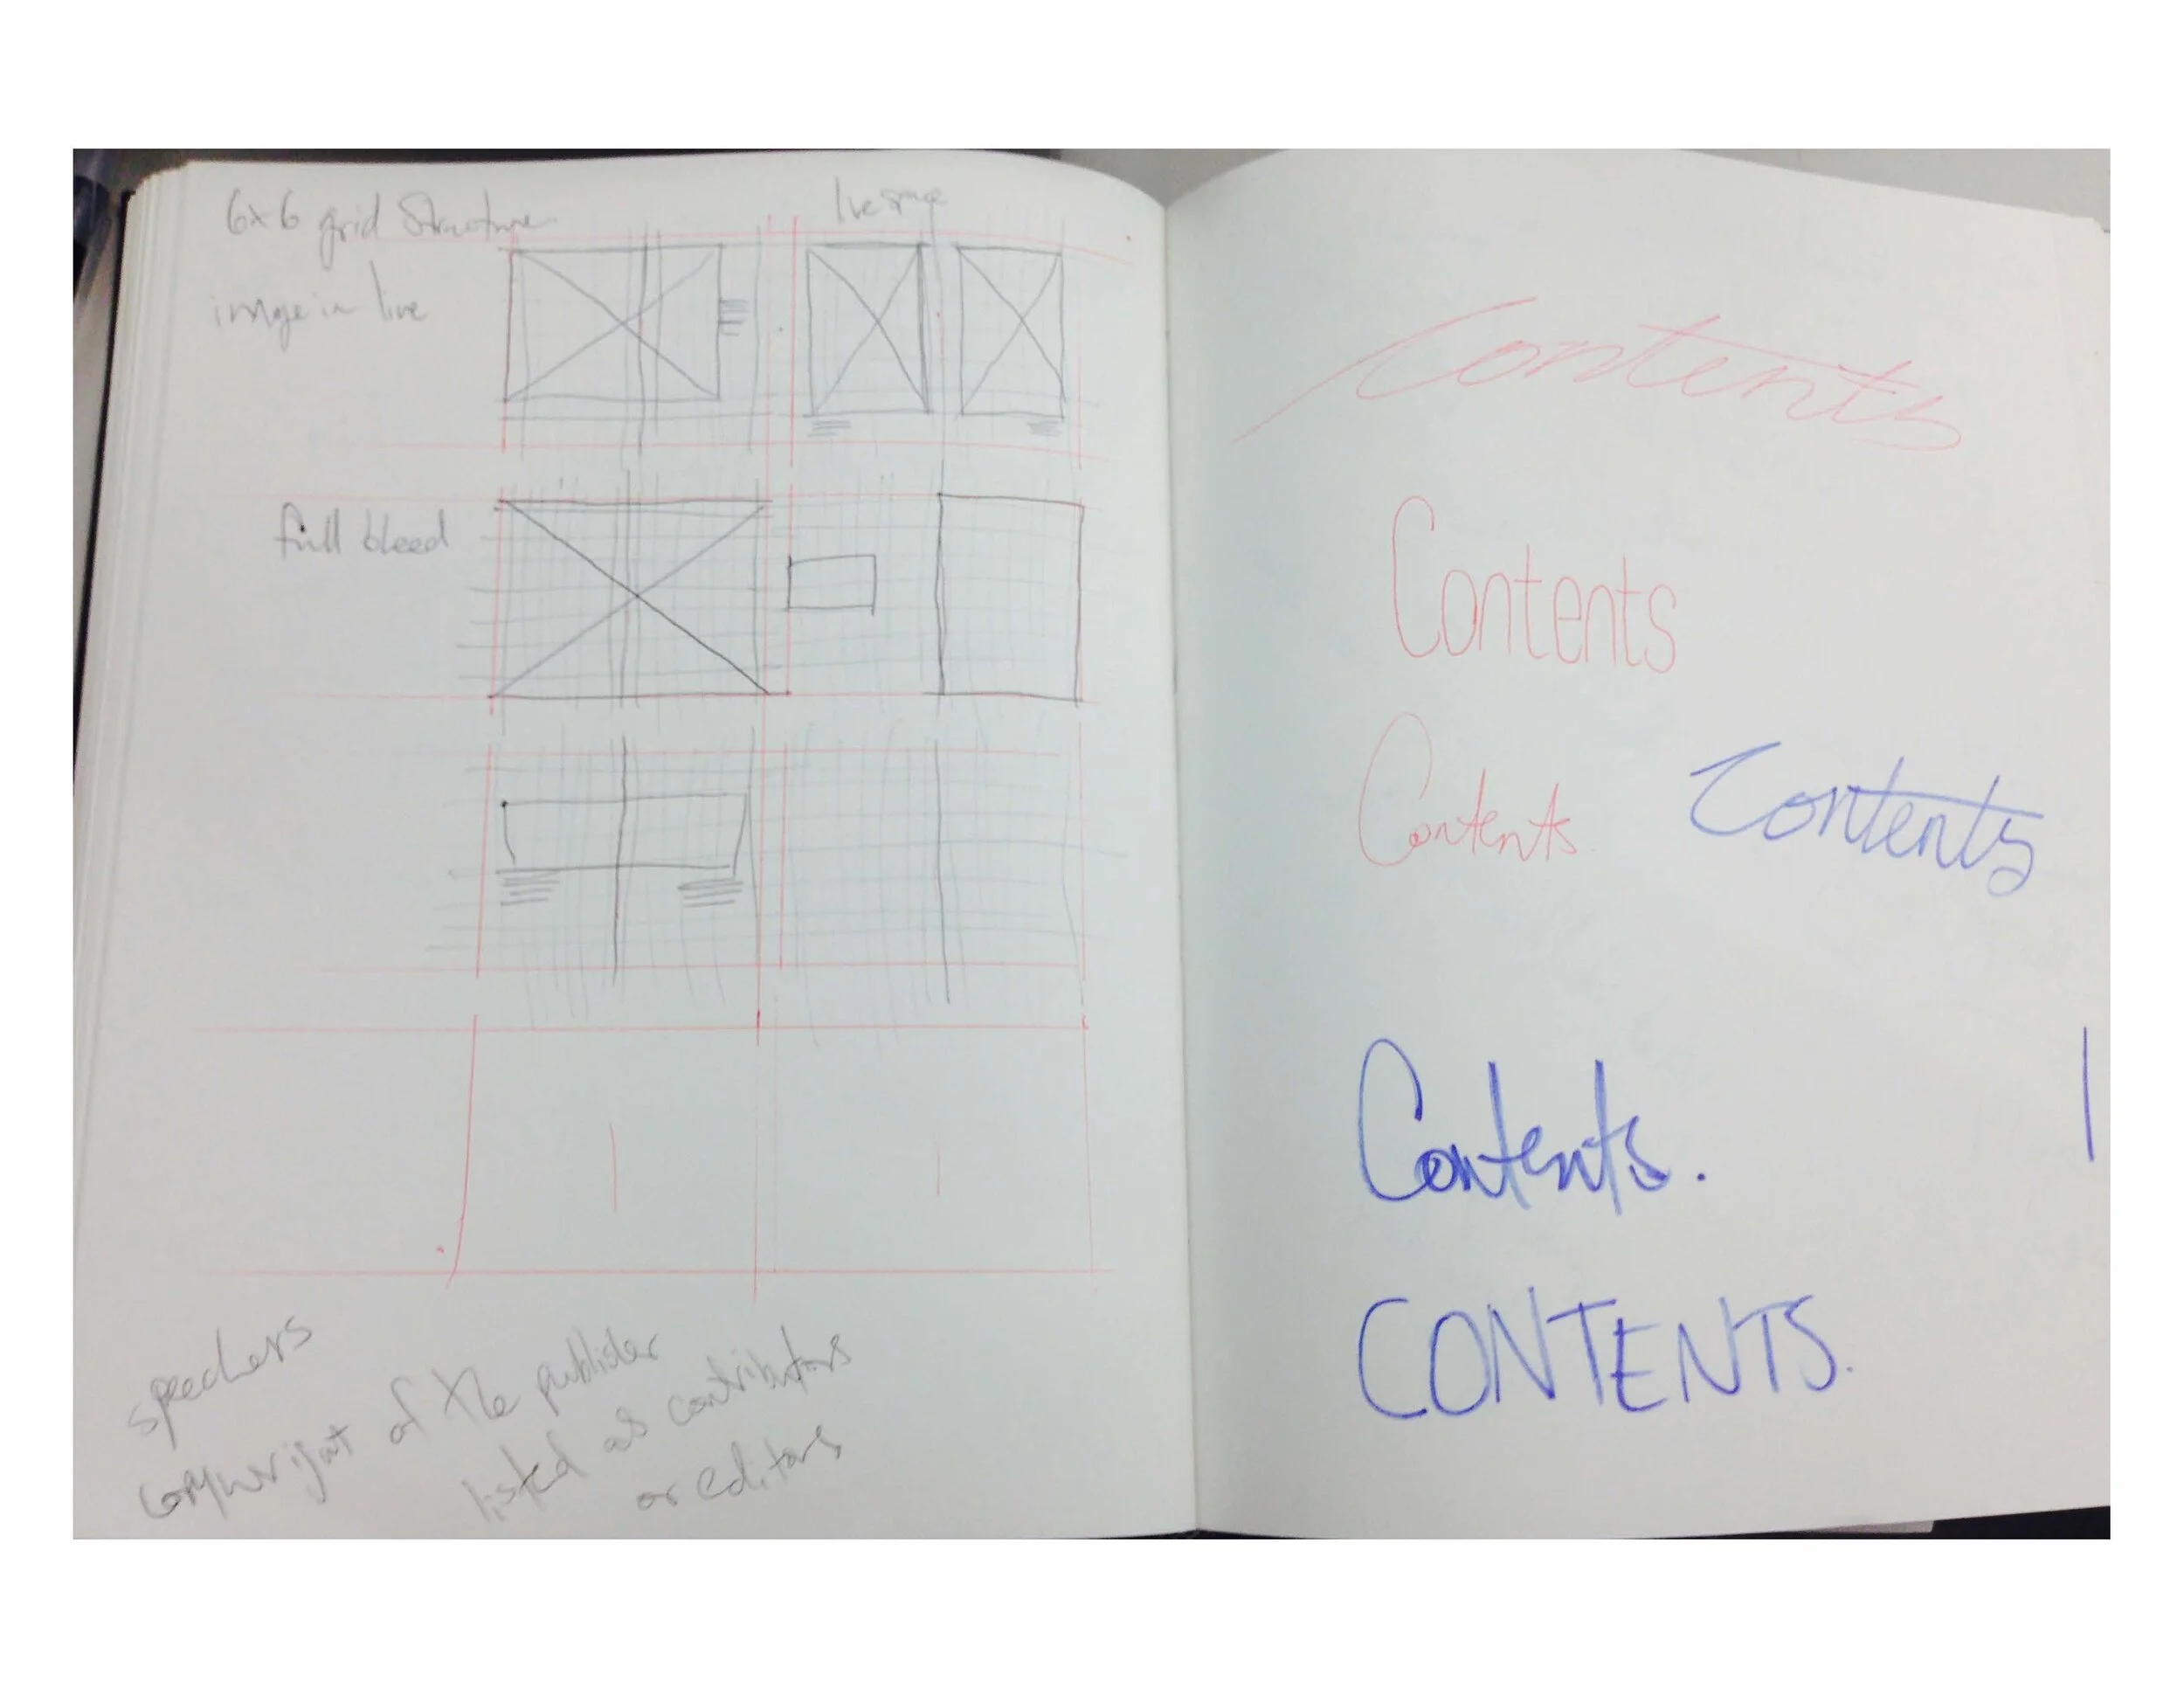 6x6 grid Structure
live
image in live
full bleed
speakers
copywright of the publisher
listed as contributors
or editors
Contents
Contents
Contents
Contents
Contents.
CONTENTS.